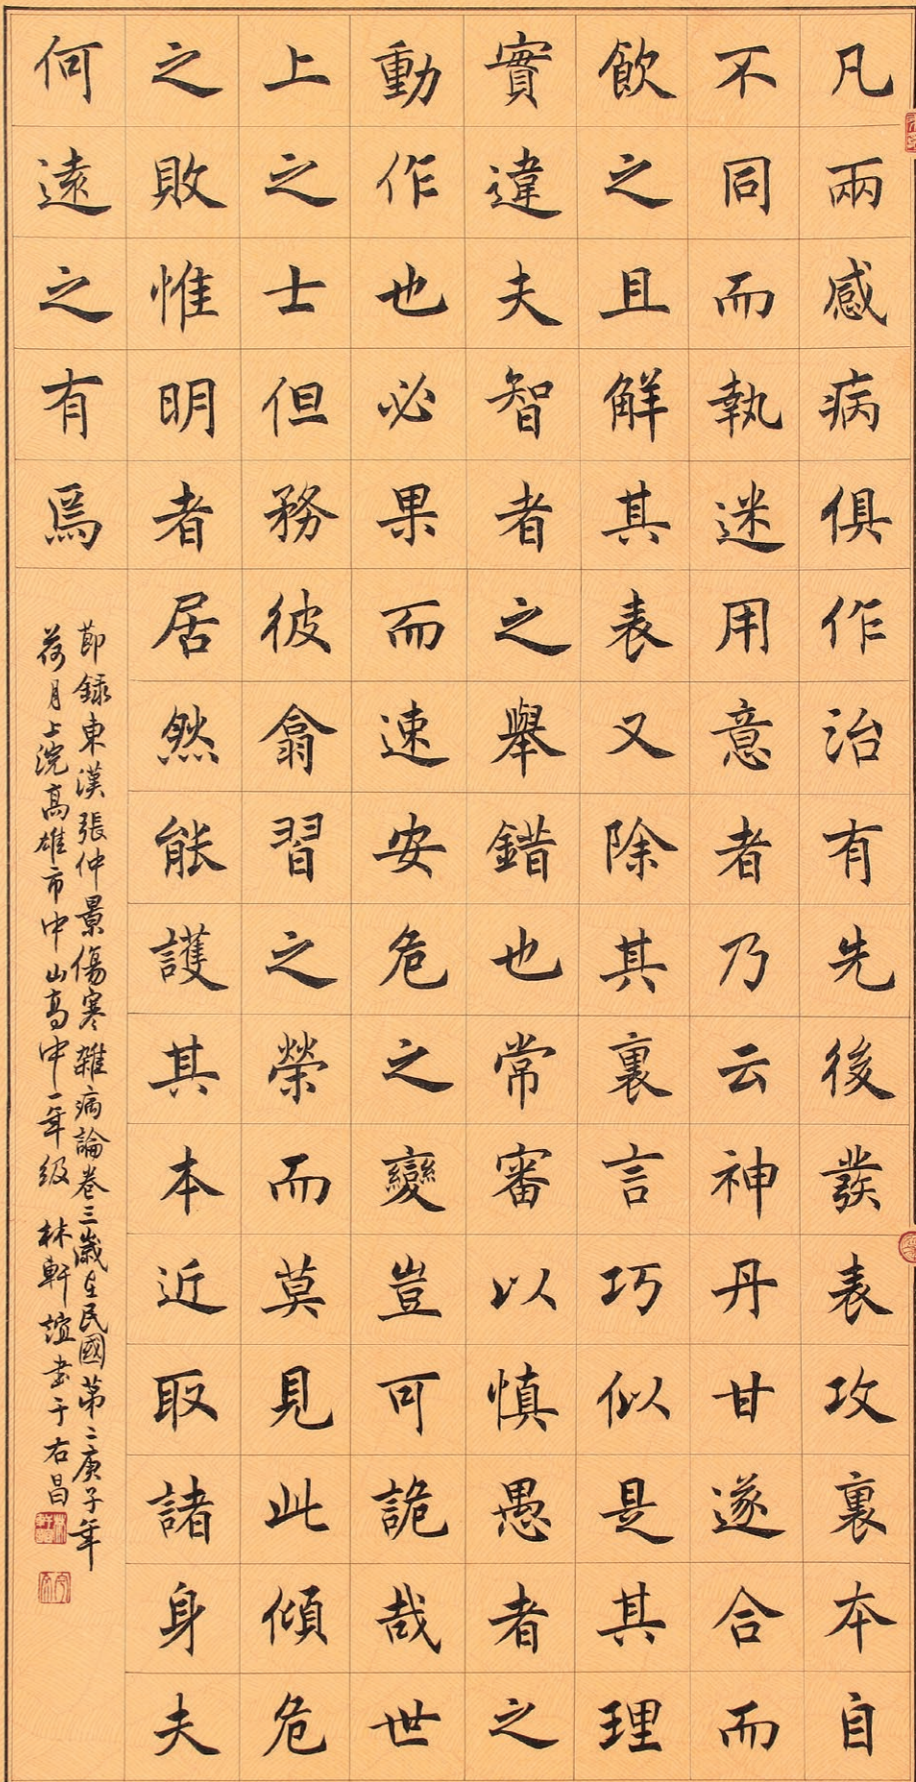 凡兩感病俱作治有先後發表攻裏本自
不同而執迷用意者乃云神丹甘遂合而
飲之且解其表又除其裏言巧似是其理
實違夫智者之舉錯也常審以慎愚者之
動作也必果而速安危之變豈可詭哉世
上之士但務彼翕習之榮而莫見此傾危
之敗惟明者居然能護其本近取諸身夫
何遠之有焉
節錄東漢張仲景傷寒雜病論卷三歲在民國第二庚子年
荷月上浣高雄市中山高中一年級 林軒誼書于右昌